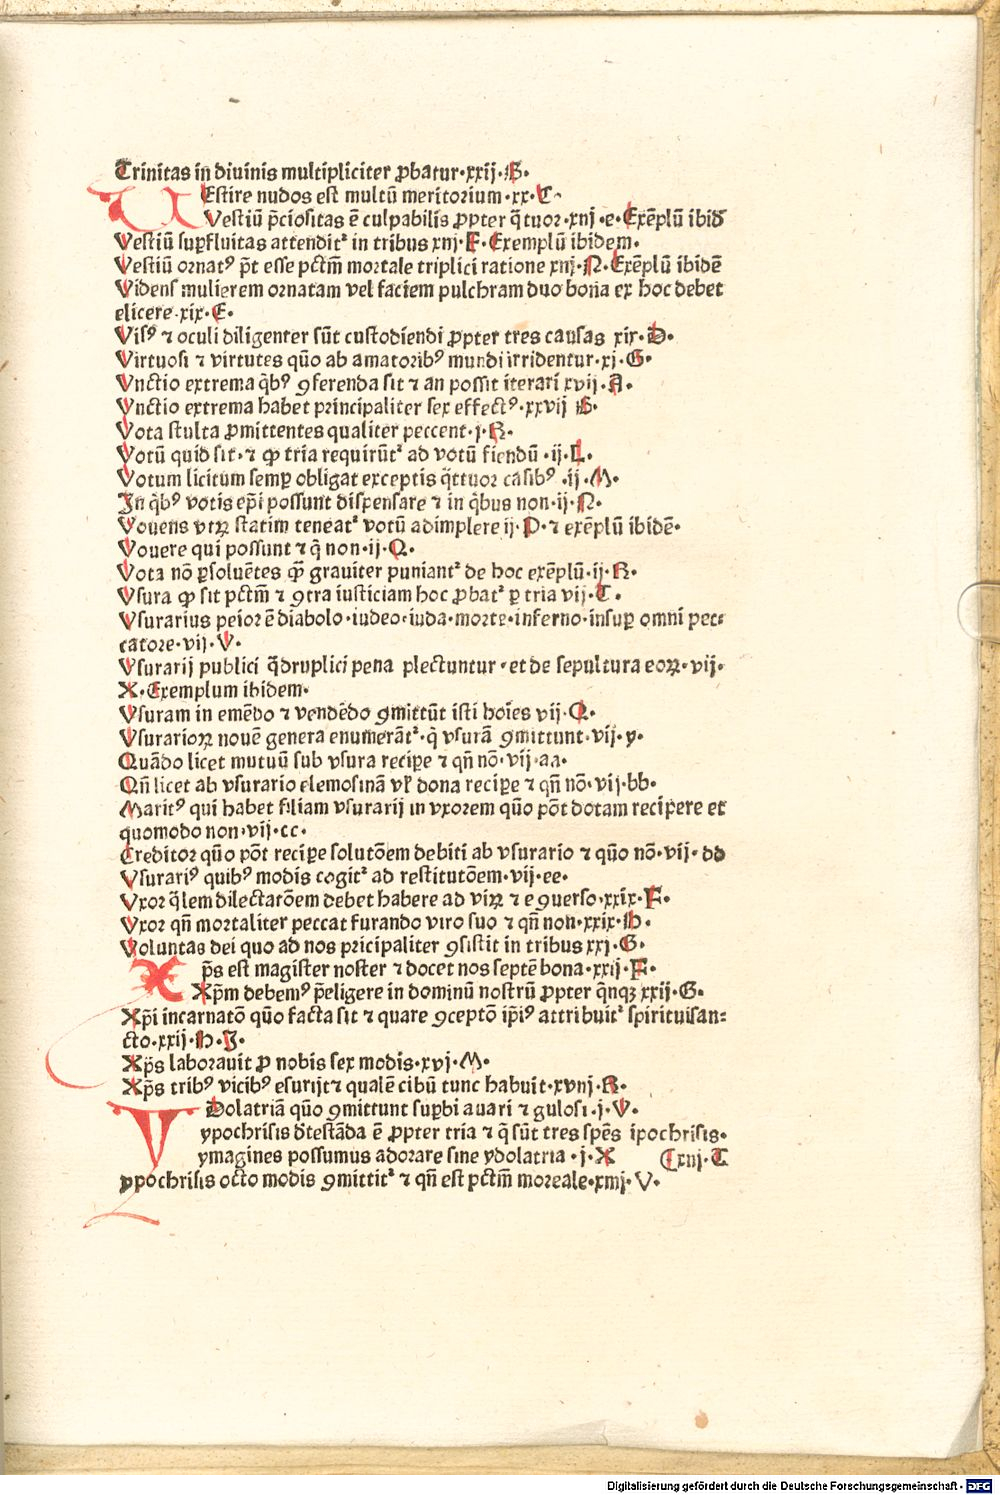 Trinitas in diuinis multipliciter ꝓbatur·xxij·B·
UEstire nudos est multū meritorium·xx·C·
Vestiū p̄ciositas ē culpabilis ꝓpter q̄tuor·xnj·e·Exēplū ibid
Vestiū suꝑfluitas attendit᷑ in tribus xnj·F·Exemplū ibidem·
Vestiū ornatꝰ p̄t esse pctm̄ mortale triplici ratione xnj·N·Exēplū ibidē
Videns mulierem ornatam vel faciem pulchram duo bona ex hoc debet
elicere·xix·E·
Visꝰ ⁊ oculi diligenter sūt custodiendi ꝓpter tres causas xix·D·
Virtuosi ⁊ virtutes quō ab amatoribꝰ mundi irridentur·xj·G·
Vnctio extrema q̄bꝰ ꝯferenda sit ⁊ an possit iterari xvij·A·
Vnctio extrema habet principaliter sex effectꝰ·xxvij B·
Vota stulta ꝓmittentes qualiter peccent·j·R·
Votū quid sit·⁊ ꝙ tria requirūt᷑ ad votū fiendū·ij·L·
Votum licitum semꝑ obligat exceptis q̄ttuor casibꝰ·ij·M·
In q̄bꝰ votis ep̄i possunt dispensare ⁊ in q̄bus non·ij·N·
Vouens vtꝝ statim teneat᷑ votū adimplere ij·P·⁊ exēplū ibidē·
Vouere qui possunt ⁊ q̄ non·ij·Q·
Vota nō ꝑsoluētes ꝙ̄ grauiter puniant᷑ de hoc exēplū·ij·R·
Vsura ꝙ sit pctm̄ ⁊ ꝯtra iusticiam hoc ꝓbat᷑ ꝑ tria vij·T·
Vsurarius peior ē diabolo·iudeo·iuda·morte·inferno·insuꝑ omni pec⸗
catore·vij·V·
Vsurarij publici q̄druplici pena plectuntur·et de sepultura eoꝝ·vij·
X·Exemplum ibidem·
Vsuram in emēdo ⁊ vendēdo ꝯmittūt isti hoīes vij·Q·
Vsurarioꝝ nouē genera enumerāt᷑·q̄ vsurā ꝯmittunt·vij·y·
Quādo licet mutuū sub vsura reciꝑe ⁊ qn̄ nō·vij·aa·
Qn̄ licet ab vsurario elemosinā vl̓ dona reciꝑe ⁊ qn̄ nō·vij·bb·
Maritꝰ qui habet filiam vsurarij in vxorem quō pōt dotam recipere et
quomodo non·vij·cc·
Creditor quō pōt reciꝑe solutōem debiti ab vsurario ⁊ quō nō·vij·dd
Vsurariꝰ quibꝰ modis cogit᷑ ad restitutōem·vij·ee·
Vxor q̄lem dilectatōem debet habere ad viꝝ ⁊ e ꝯuerso·xxix·F·
Vxor qn̄ mortaliter peccat furando viro suo ⁊ qn̄ non·xxix·H·
Voluntas dei quo ad nos pricipaliter ꝯsistit in tribus xxj·G·
Xp̄s est magister noster ⁊ docet nos septē bona·xxij·F·
Xp̄m debemꝰ p̄eligere in dominū nostrū ꝓpter q̄nqꝫ xxij·G·
Xp̄i incarnatō quō facta sit ⁊ quare ꝯceptō ip̄iꝰ attribuit᷑ spirituisan⸗
cto·xxij·H·J·
Xp̄s laborauit ꝓ nobis sex modis·xvj·M·
Xp̄s tribꝰ vicibꝰ esurijt ⁊ qualē cibū tunc habuit·xvnj·R·
YDolatriā quō ꝯmittunt suꝑbi auari ⁊ gulosi·j·V·
ypochrisis d̓testāda ē ꝓpter tria ⁊ q̄ sūt tres sp̄es ipochrisis·
ymagines possumus adorare sine ydolatria·j·X (xnj·T
ypochrisis octo modis ꝯmittit᷑ ⁊ qn̄ est pctm̄ moreale·xmj·V·
Digitalisierung gefördert durch die Deutsche Forschungsgemeinschaft - DFG